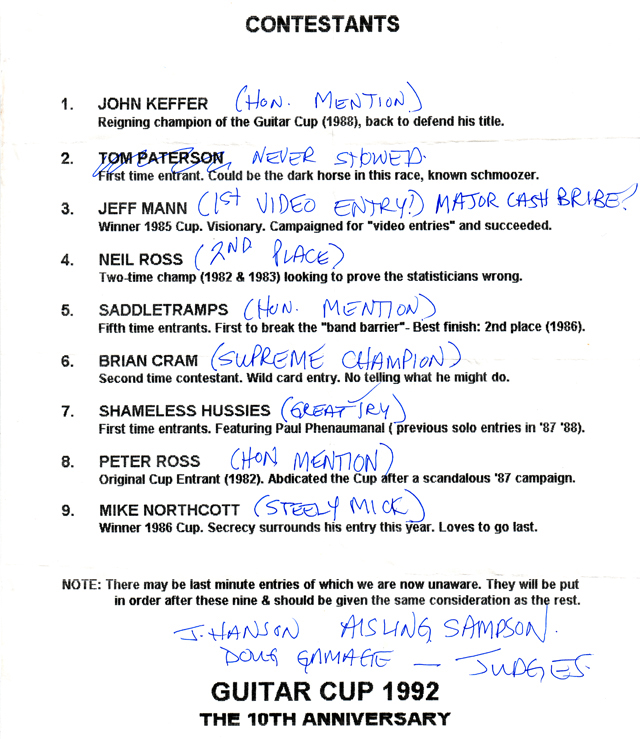 CONTESTANTS
1. JOHN KEFFER (HON. MENTION)
Reigning champion of the Guitar Cup (1988), back to defend his title.
2. TOM PATERSON NEVER SHOWED.
First time entrant. Could be the dark horse in this race, known schmoozer.
3. JEFF MANN (1ST VIDEO ENTRY?) MAJOR CASH BRIBE?
Winner 1985 Cup. Visionary. Campaigned for "video entries" and succeeded.
4. NEIL ROSS (2ND PLACE)
Two-time champ (1982 & 1983) looking to prove the statisticians wrong.
5. SADDLETRAMPS (HON. MENTION)
Fifth time entrants. First to break the "band barrier"- Best finish: 2nd place (1986).
6. BRIAN CRAM (SUPREME CHAMPION)
Second time contestant. Wild card entry. No telling what he might do.
7. SHAMELESS HUSSIES (GREAT TRY)
First time entrants. Featuring Paul Phenaumanal ( previous solo entries in '87 '88).
8. PETER ROSS (HON MENTION)
Original Cup Entrant (1982). Abdicated the Cup after a scandalous '87 campaign.
9. MIKE NORTHCOTT (STEELY MICK)
Winner 1986 Cup. Secrecy surrounds his entry this year. Loves to go last.
NOTE: There may be last minute entries of which we are now unaware. They will be put
in order after these nine & should be given the same consideration as the rest.
J. HANSON AISLING SAMPSON.
DOUG GAMAGE — JUDGES.
GUITAR CUP 1992
THE 10TH ANNIVERSARY